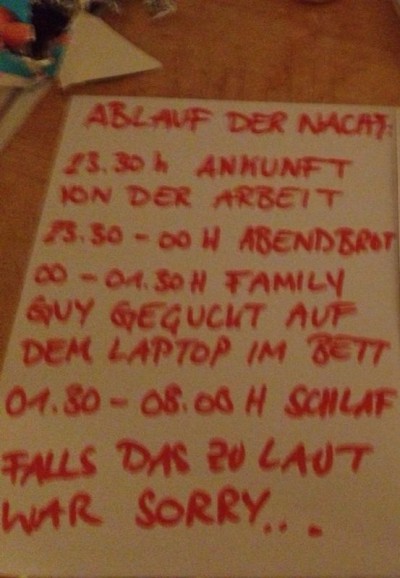 ABLAUF DER NACHT:
23.30 h ANKUNFT
VON DER ARBEIT
23.30 - 00 H ABENDBROT
00 - 01.30 H FAMILY
GUY GEGUCKT AUF
DEM LAPTOP IM BETT
01.30 - 08.00 H SCHLAF
FALLS DAS ZU LAUT
WAR SORRY...